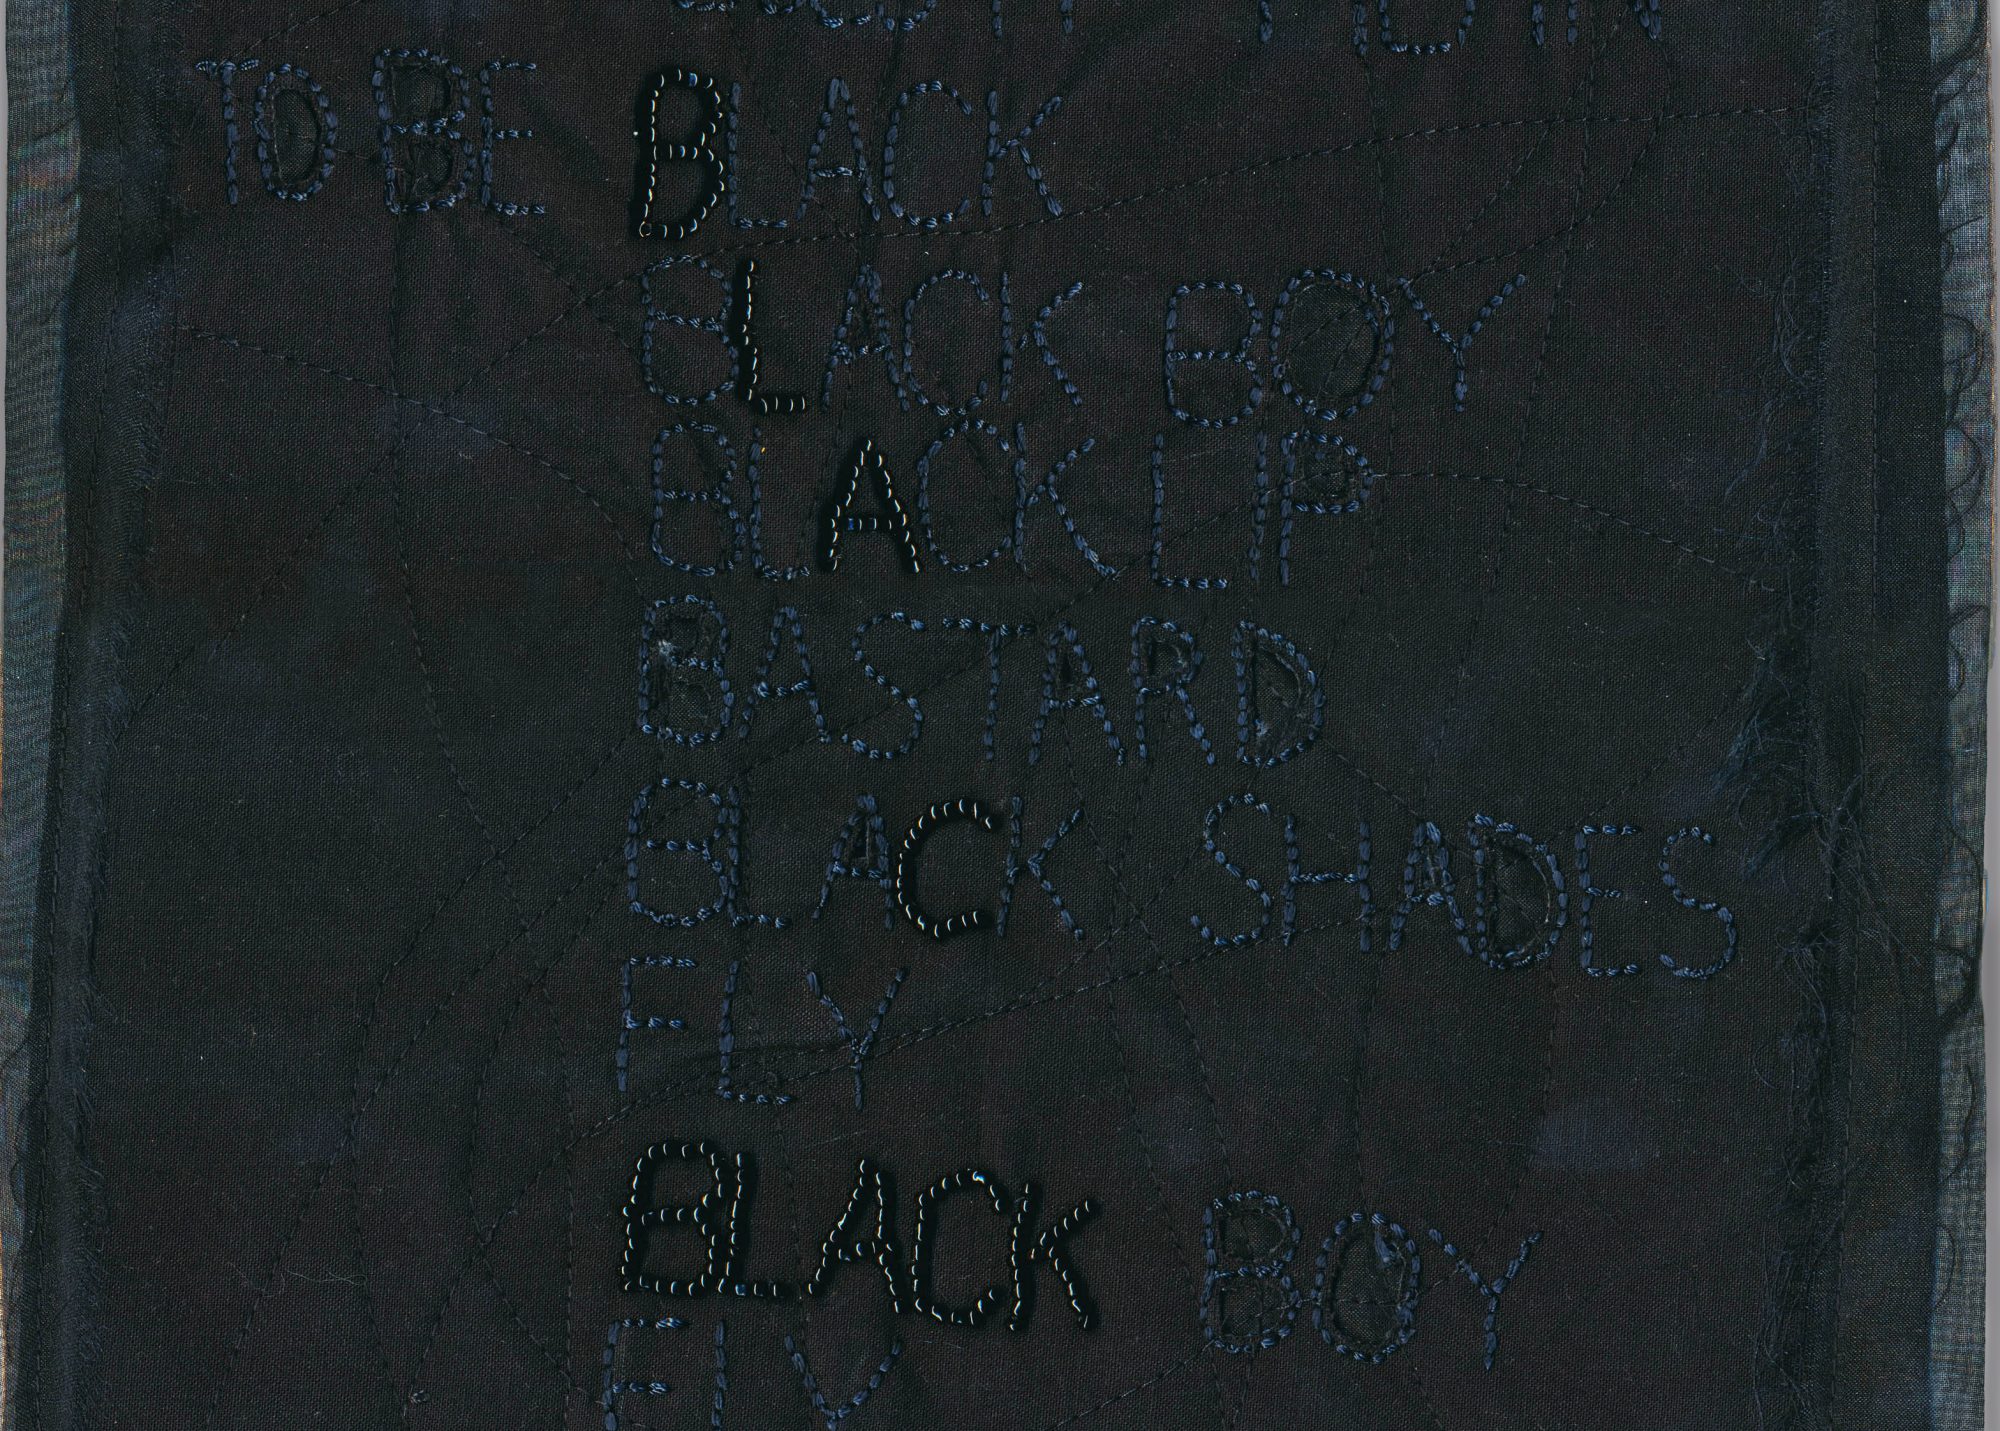 TO BE BLACK
BLACK BOY
BLACK LIP
BASTARD
BLACK SHADES
FLY
BLACK BOY
FLY